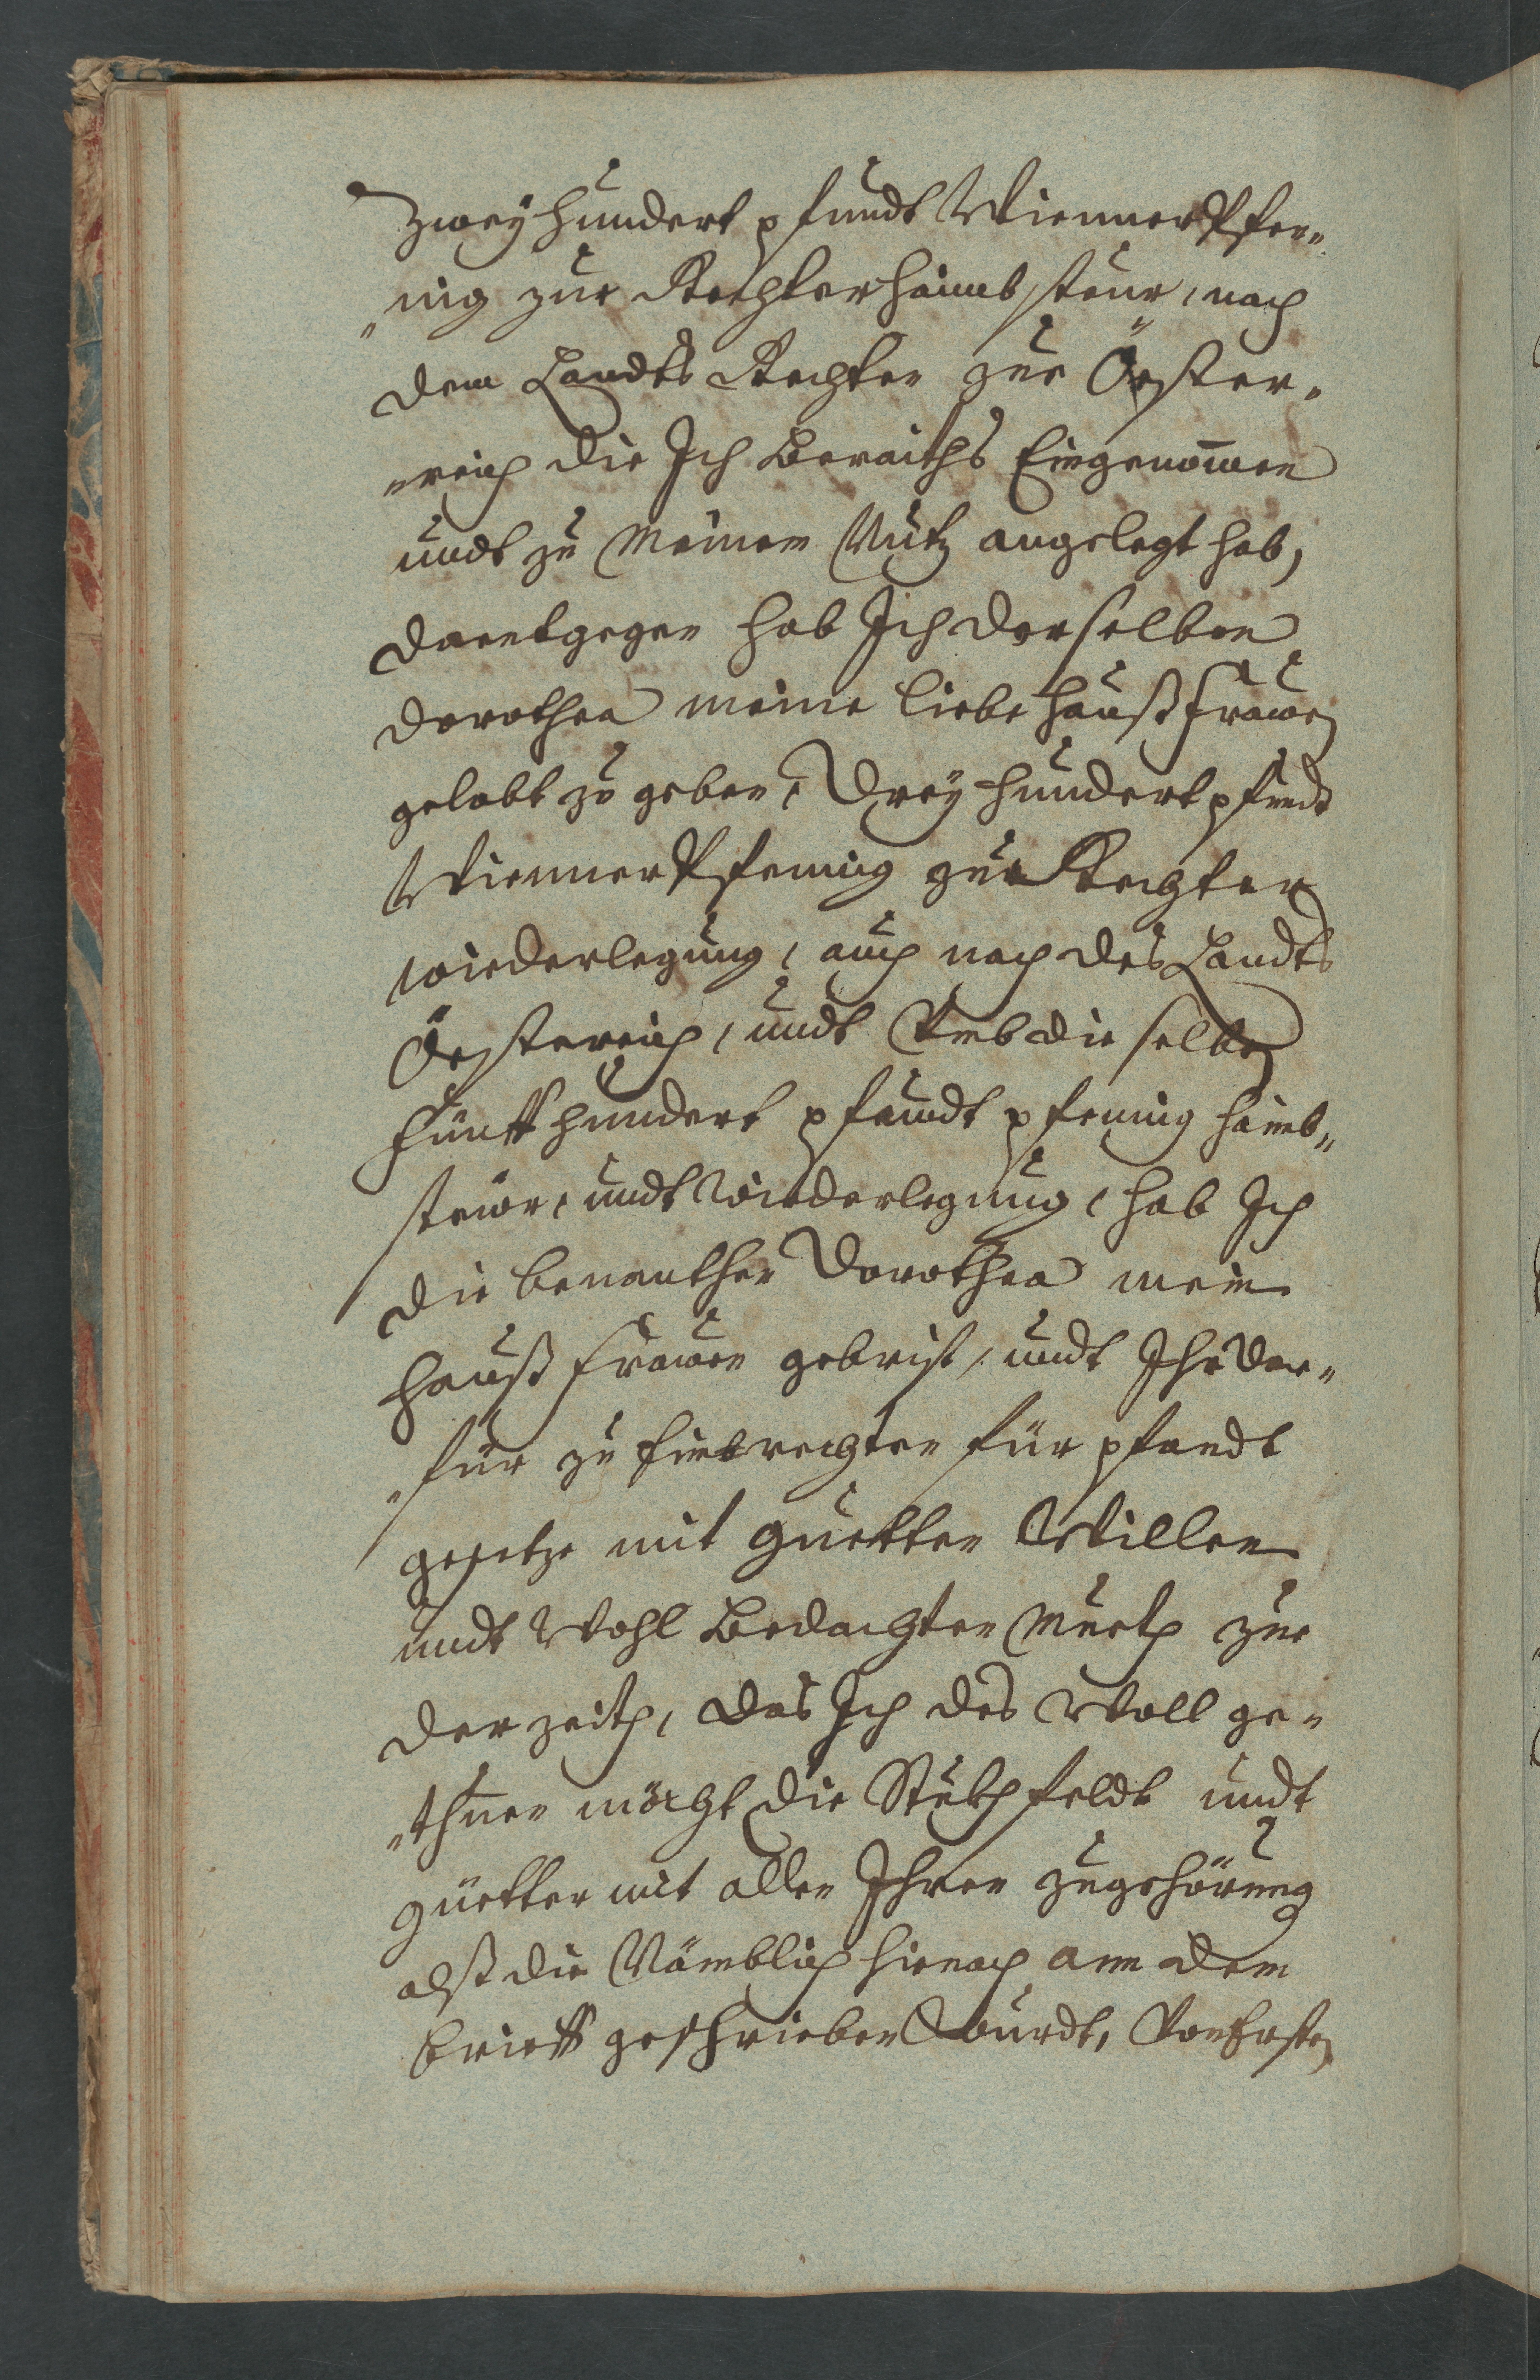 Zwey hundert pfundt Wienner Pfen„
„nig zur Rechter haimbsteur, nach
dem Landts Rechten zue Öester„
„reich die Ich Beraiths Eingenom̄en
undt zu Meinem Nutz angelegt hab,
daentgegen hab Ich derselben
Dorothea meine liebe haußfrauen
gelobt zu geben, Drey hundert pfundt
Wienner Pfennig zur Rechter
wiederlegung, auch nach des Landts
Öesterreich, undt Umb die selben
Fünff hundert pfundt pfening haimb„
steur, undt Wiederlegung, hab Ich
die benanthe Dorothea mein
haußfrauen geweist, undt Ihr dar„
„für zu rechten für pfandt
gesetze mit guetten Willen
undt Wohl Bedachten Mueth zue
der zeith, das Ich des Woll ge„
„thuen möcht die Stuckh feldt undt
güetter mit allen Ihren zugehörung
alß die Nämblich hienach ann dem
brieff geschrieben Wurdt, Von Ersten